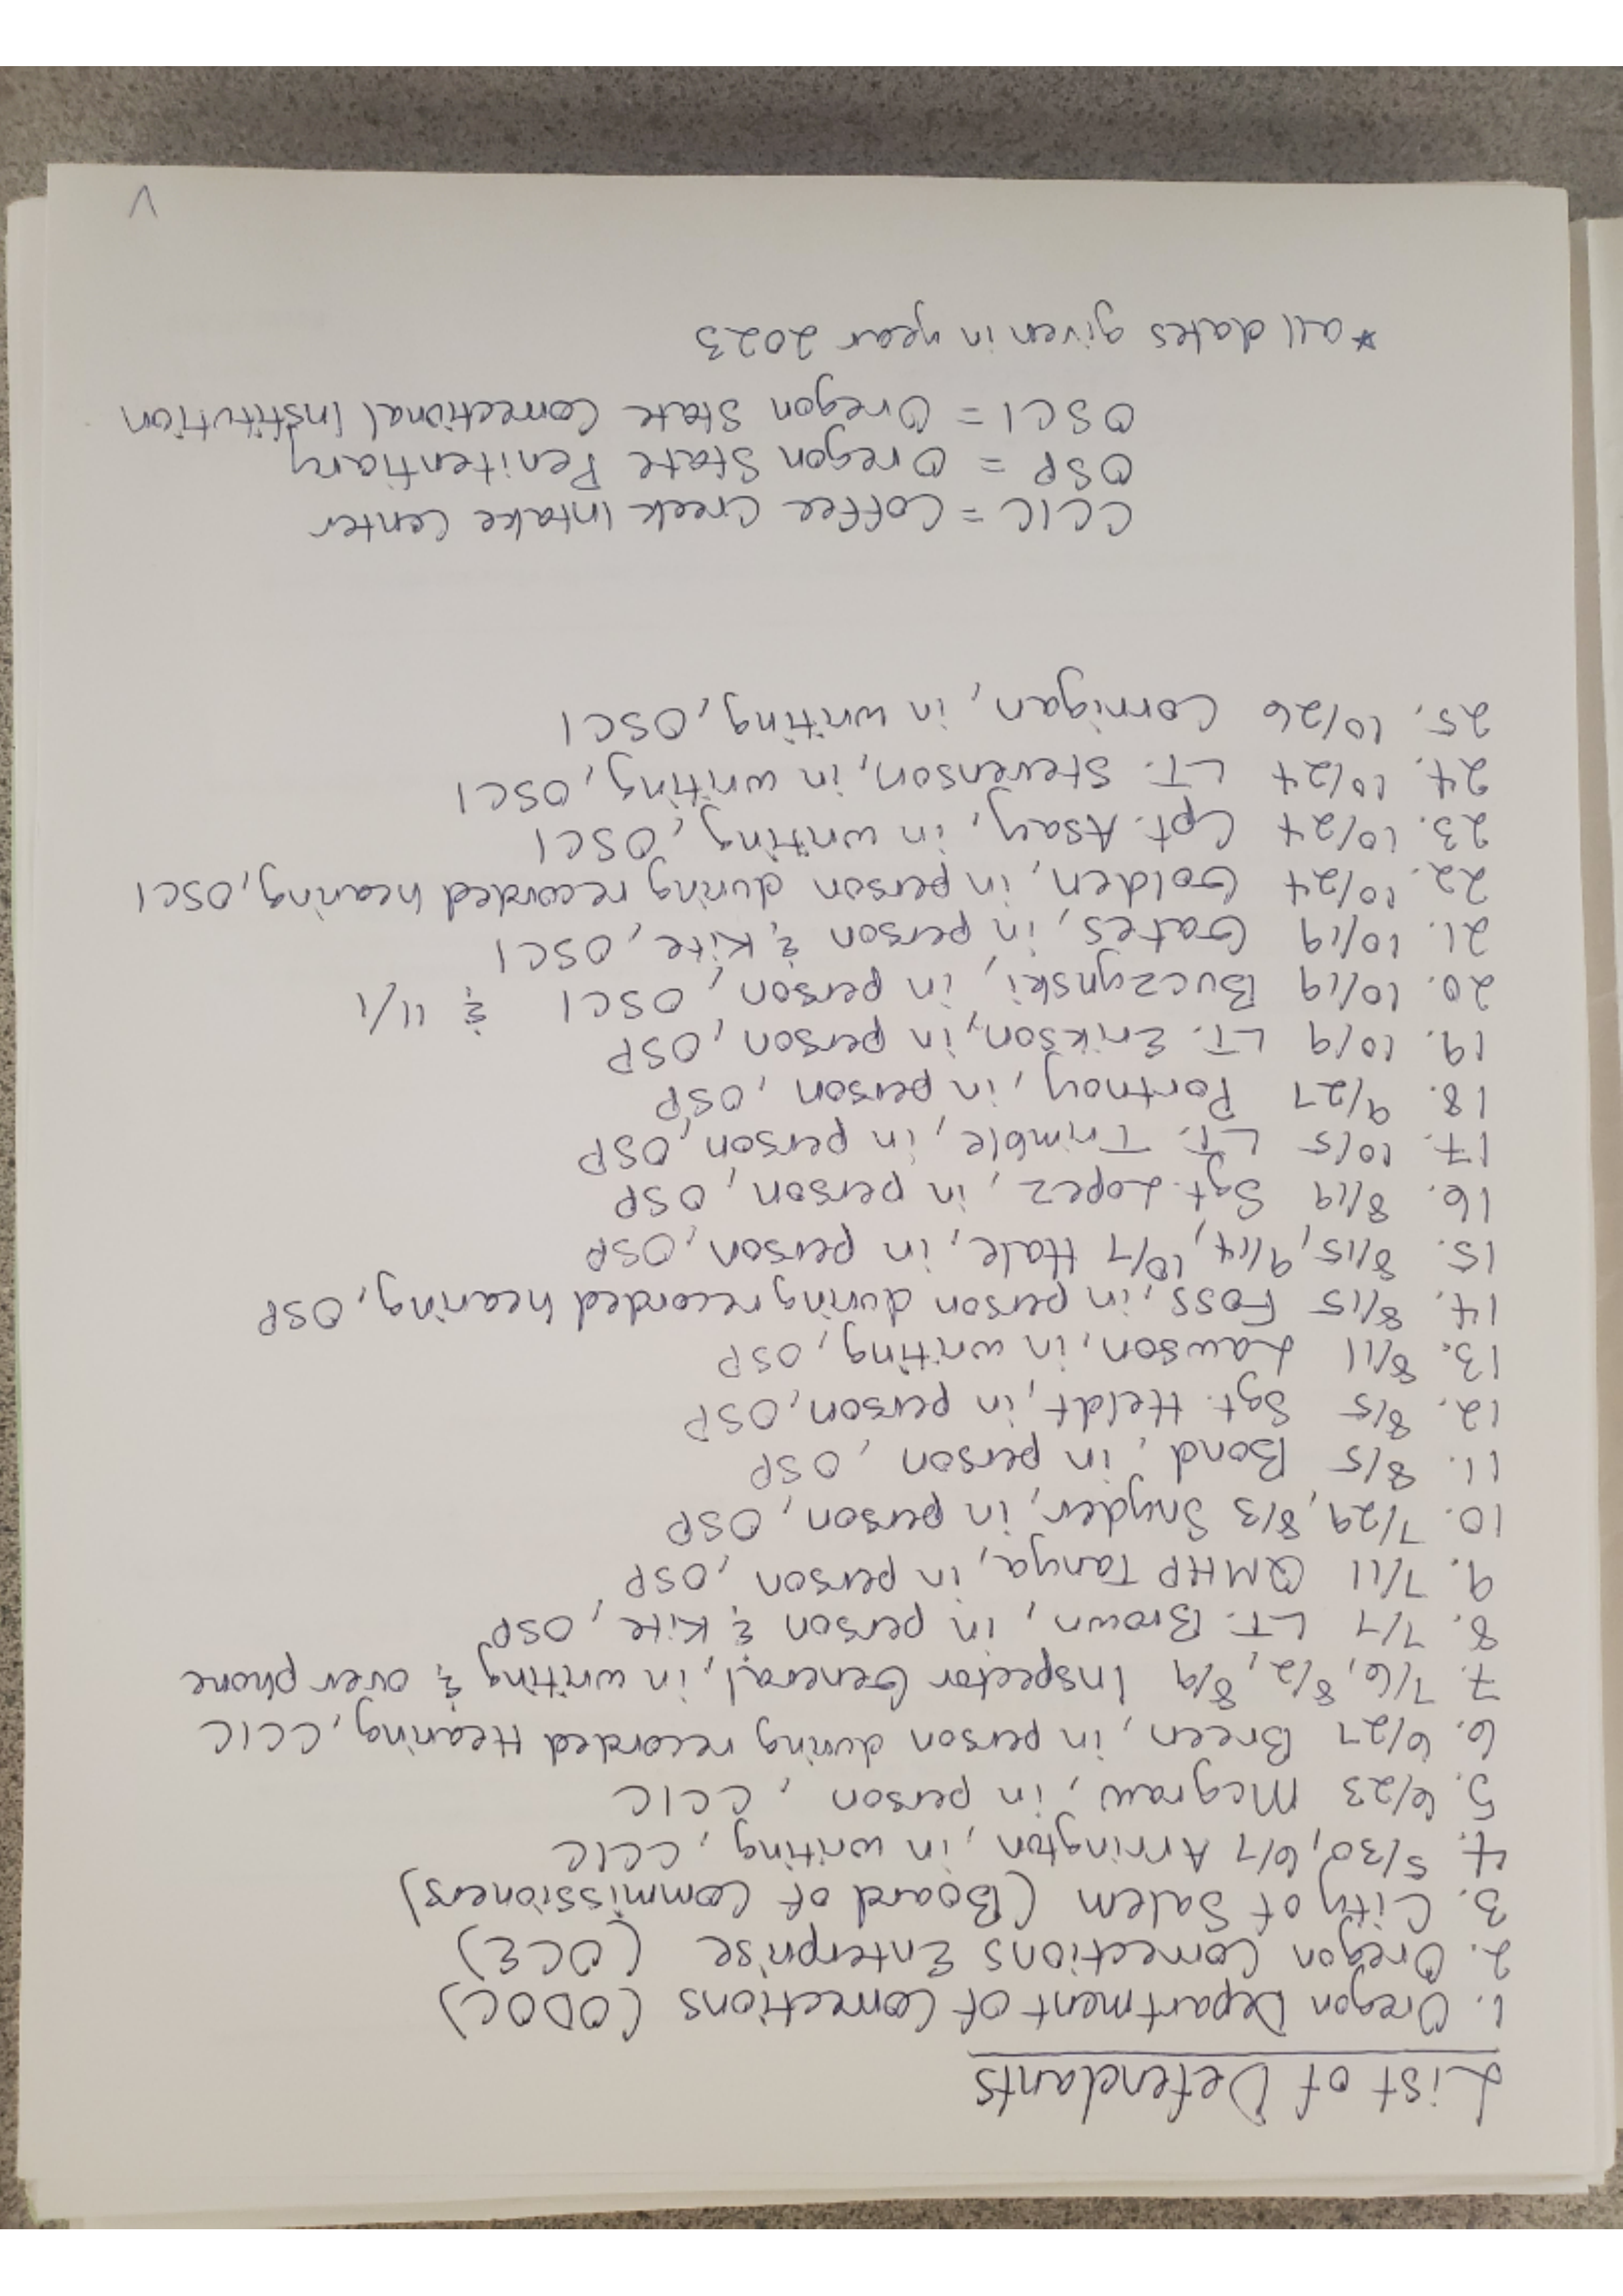 List of Defendants
1. Oregon Department of Corrections (ODOC)
2. Oregon Corrections Enterprise (OCE)
3. City of Salem (Board of Commissioners)
4. 5/30, 6/7 Arrington, in writing, CCIC
5. 6/23 Mcgraw, in person, CCIC
6. 6/27 Breen, in person during recorded Hearing, CCIC
7. 7/6, 8/2, 8/9 Inspector General, in writing & over phone
8. 7/7 LT. Brown, in person & Kite, OSP
9. 7/11 QMHP Tanya, in person, OSP
10. 7/29, 8/3 Snyder, in person, OSP
11. 8/5 Bond, in person, OSP
12. 8/5 Sgt. Heldt, in person, OSP
13. 8/11 Lawson, in writing, OSP
14. 8/15 Foss, in person during recorded hearing, OSP
15. 8/15, 9/14, 10/7 Hale, in person, OSP
16. 8/19 Sgt. Lopez, in person, OSP
17. 10/5 LT. Trimble, in person, OSP
18. 9/27 Portnoy, in person, OSP
19. 10/9 LT. Erikson, in person, OSP
20. 10/19 Buczynski, in person, OSCI & 11/1
21. 10/19 Gates, in person & Kite, OSCI
22. 10/24 Golden, in person during recorded hearing, OSCI
23. 10/24 Cpt. Asay, in writing, OSCI
24. 10/24 LT. Stevenson, in writing, OSCI
25. 10/26 Cornigan, in writing, OSCI
CCIC = Coffee Creek Intake Center
OSP = Oregon State Penitentiary
OSCI = Oregon State Correctional Institution
*all dates given in year 2023